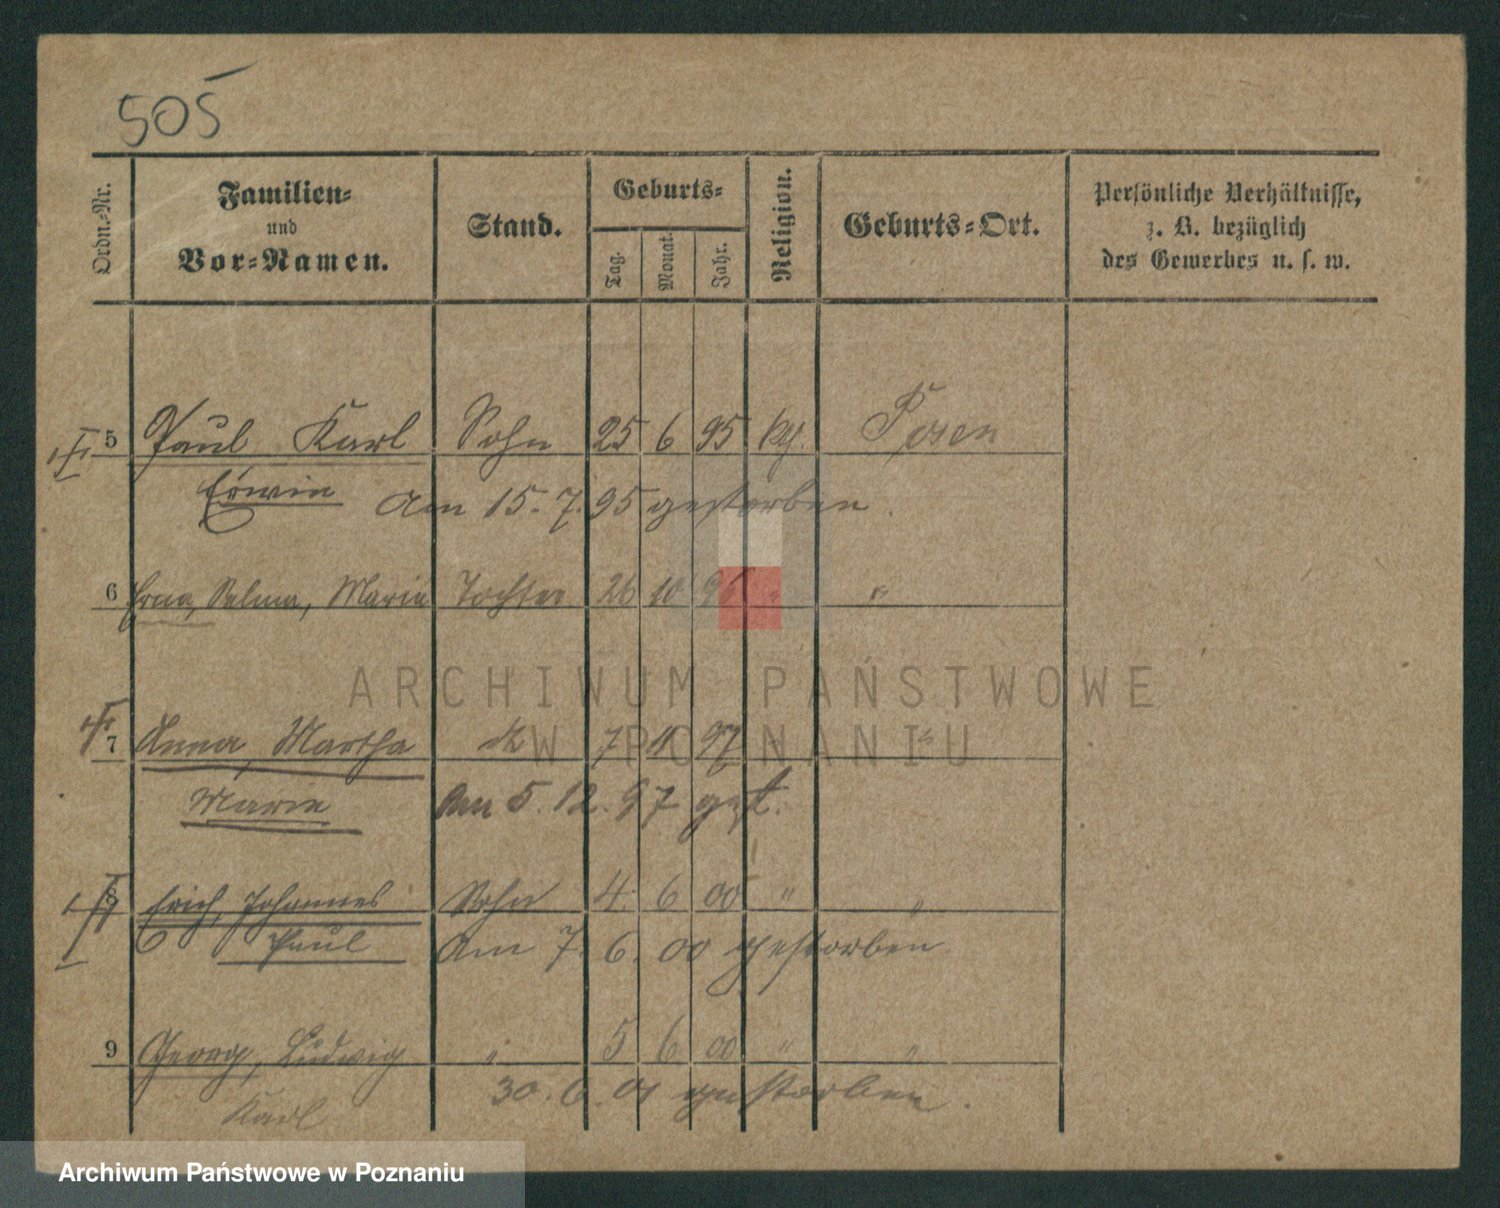 505
Ordn.-Nr.
Familien-
und
Vor-Namen.
Stand.
Geburts-
Tag.
Monat.
Jahr.
Religion.
Geburts-Ort.
Persönliche Verhältnisse,
z. B. bezüglich
des Gewerbes u. s. w.
5 Paul Karl Sohn 25 6 95 Posen
Erwin Am 15. 7. 95 gestorben.
6 Erna, Selma, Marie Tochter 26 10 96 " "
ARCHIWUM PAŃSTWOWE
W POZNANIU
7 Anna, Martha 7 11 97 "
Marie Am 5. 12. 97 gest.
8 Erich, Johannes Sohn 4. 6 00 " "
Paul Am 7. 6. 00 gestorben.
9 Georg, Ludwig " 5 6 00 " "
Karl 30. 6. 01 gestorben.
Archiwum Państwowe w Poznaniu